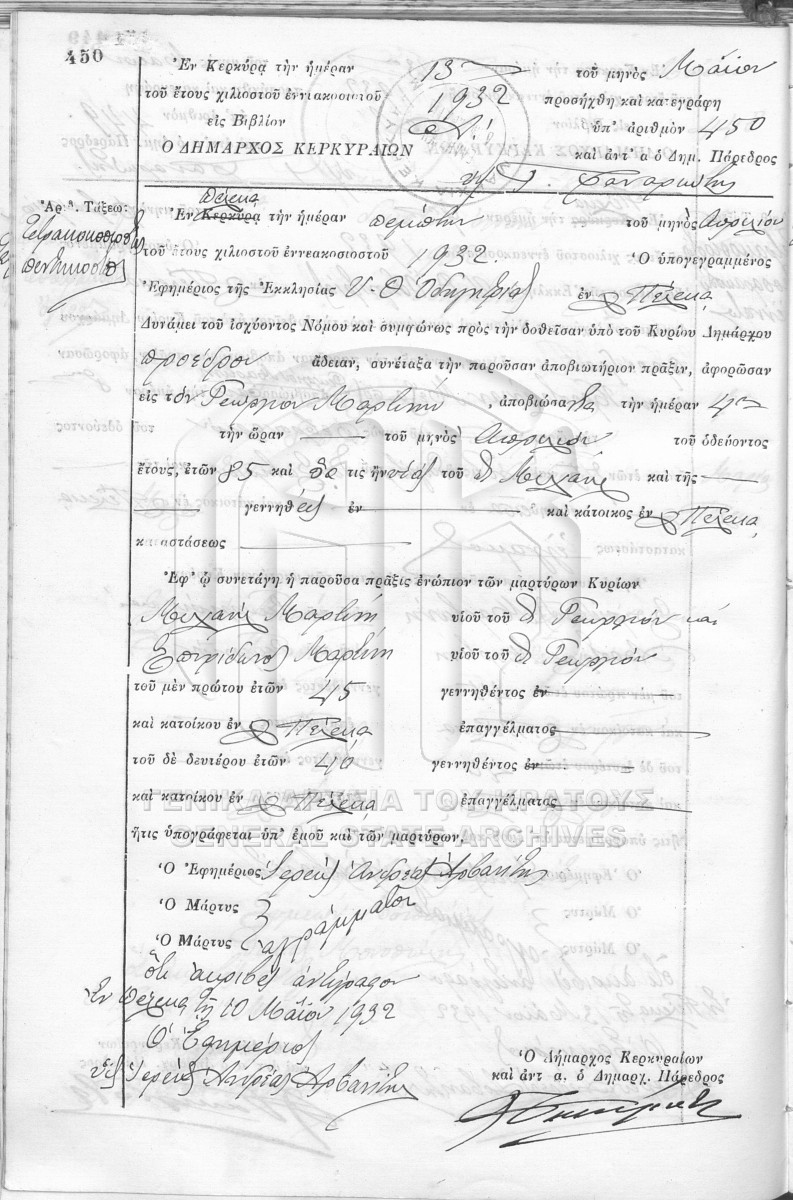 450
Ἐν Κερκύρᾳ τὴν ἡμέραν 13 τοῦ μηνὸς Μαΐου
τοῦ ἔτους χιλιοστοῦ ἐννιακοσιοστοῦ 1932 προσήχθη καὶ κατεγράφη
εἰς Βιβλίον Α! ὑπ' ἀριθμὸν 450
Ο ΔΗΜΑΡΧΟΣ ΚΕΡΚΥΡΑΙΩΝ καὶ ἀντ' α ὁ Δημ. Πάρεδρος
Πέλεκα
Ἀριθ. Τάξεω:
Τετρακοσιοστὴ
πεντηκοστὴ
Ἐν Κερκύρᾳ τὴν ἡμέραν πέμπτην τοῦ μηνὸς Ἀπριλίου
τοῦ ἔτους χιλιοστοῦ ἐννεακοσιοστοῦ 1932. Ὁ ὑπογεγραμμένος
Ἐφημέριος τῆς Ἐκκλησίας Υ-Θ Ὁδηγητρίας ἐν Πέλεκα
Δυνάμει τοῦ ἰσχύοντος Νόμου καὶ συμφώνως πρὸς τὴν δοθεῖσαν ὑπὸ τοῦ Κυρίου Δημάρχου
προέδρου ἄδειαν, συνέταξα τὴν παροῦσαν ἀποβιωτήριον πρᾶξιν, ἀφορῶσαν
εἰς τὸν Γεώργιον Μαρτίνη, ἀποβιώσαντα τὴν ἡμέραν 4ην
τὴν ὥραν τοῦ μηνὸς Ἀπριλίου τοῦ ὁδεύοντος
ἔτους, ἐτῶν 85 καὶ ὃς τις ἦν υἱὸς τοῦ Μιχαὴλ καὶ τῆς
γεννηθεὶς ἐν καὶ κάτοικος ἐν Πέλεκα
καταστάσεως
Ἐφ' ᾧ συνετάγη ἡ παροῦσα πρᾶξις ἐνώπιον τῶν μαρτύρων Κυρίων
Μιχαὴλ Μαρτίνη υἱοῦ τοῦ Γεωργίου καὶ
Σπυρίδωνος Μαρτίνη υἱοῦ τοῦ Γεωργίου
τοῦ μὲν πρώτου ἐτῶν 45 γεννηθέντος ἐν
καὶ κατοίκου ἐν Πέλεκα ἐπαγγέλματος
τοῦ δὲ δευτέρου ἐτῶν 40 γεννηθέντος ἐν
καὶ κατοίκου ἐν Πέλεκα ἐπαγγέλματος
ΓΕΝΙΚΑ ΑΡΧΕΙΑ ΤΟΥ ΚΡΑΤΟΥΣ
GENERAL STATE ARCHIVES
ἥτις ὑπογράφεται ὑπ' ἐμοῦ καὶ τῶν μαρτύρων,
Ὁ Ἐφημέριος Ἱερεὺς Ἀνδρέας Ἀρβανίτης
Ὁ Μάρτυς
Ὁ Μάρτυς ἀγράμματοι
Ὅτι ἀκριβὲς ἀντίγραφον
Ἐν Πέλεκα τῇ 10 Μαΐου 1932
Ὁ Ἐφημέριος
Ἱερεὺς Ἀνδρέας Ἀρβανίτης
Ὁ Δήμαρχος Κερκυραίων
καὶ ἀντ α. ὁ Δημαρχ. Πάρεδρος